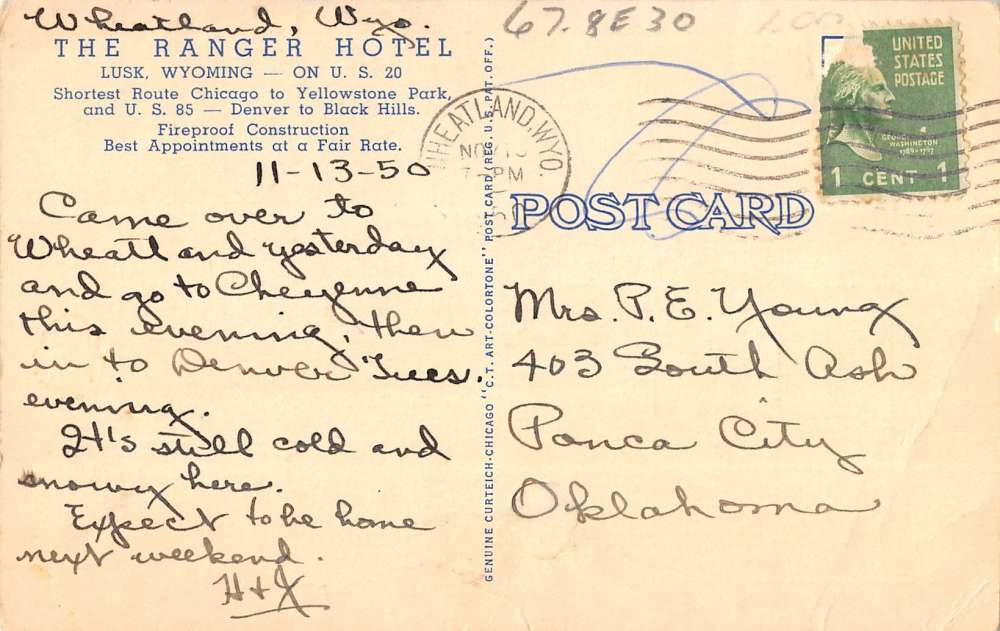 Wheatland, Wyo.
67.8E30
THE RANGER HOTEL
LUSK, WYOMING — ON U. S. 20
Shortest Route Chicago to Yellowstone Park,
and U. S. 85 — Denver to Black Hills.
Fireproof Construction
Best Appointments at a Fair Rate.
11-13-50
Came over to
Wheatland yesterday
and go to Cheyenne
this evening, then
in to Denver Tues.
evening.
It's still cold and
snowy here.
Expect to be home
next weekend.
GENUINE CURTEICH-CHICAGO "C.T. ART-COLORTONE" POST CARD (REG. U.S. PAT. OFF.)
WHEATLAND, WYO.
PM
UNITED
STATES
POSTAGE
GEORGE WASHINGTON
1789-1797
1 CENT 1
POST CARD
Mrs. P. E. Young
403 South Ash
Ponca City
Oklahoma